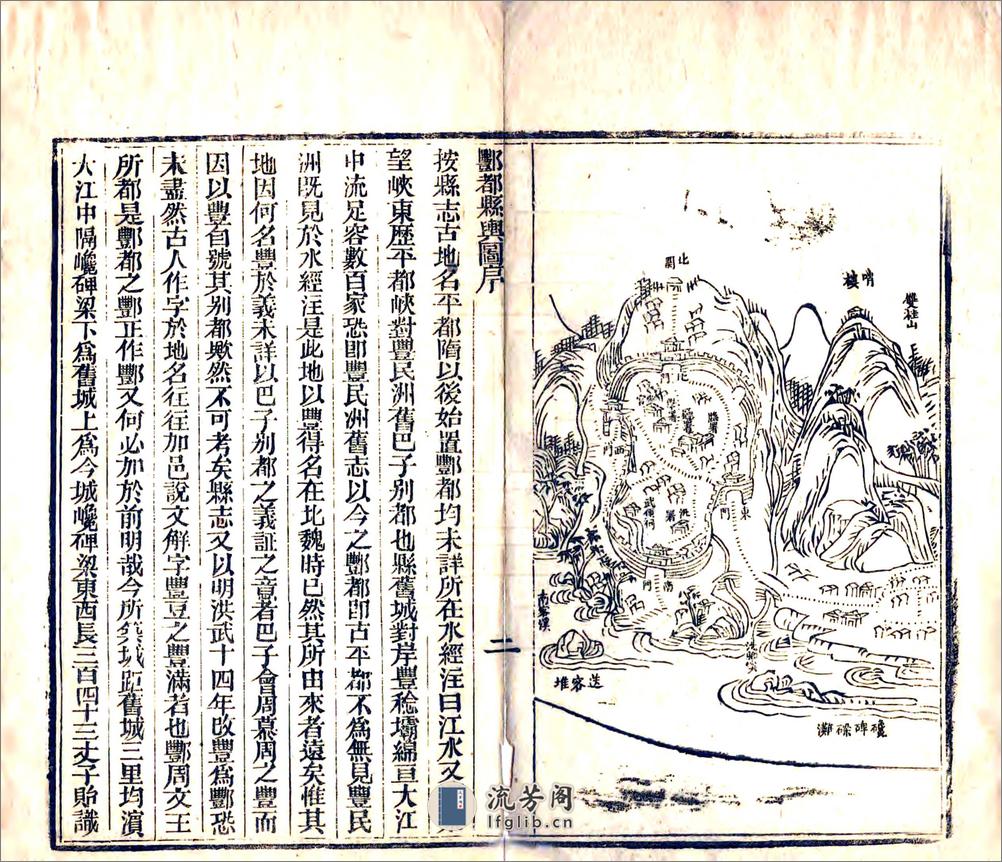 雙桂山
哨樓
北關
北門
西門
東門
南門
武衡祠
送客堆
巉碑梁灘
二
酆都縣輿圖序
按縣志古地名平都隋以後始置酆都均未詳所在水經注曰江水又
望峽東歷平都峽對豐民洲舊巴子别都也縣舊城對岸豐稔壩綿亘大江
中流足容數百家恐即豐民洲舊志以今之酆都即古平都不爲無見豐民
洲既見於水經注是此地以豐得名在北魏時已然其所由來者遠矣惟其
地因何名豐於義未詳以巴子别都之義証之意者巴子會周慕周之豐而
因以豐自號其别都歟然不可考矣縣志又以明洪武十四年改豐爲酆恐
未盡然古人作字於地名往往加邑說文觧字豐豆之豐滿者也酆周文王
所都是酆都之酆正作酆又何必加於前明哉今所築城距舊城三里均濵
大江中隔巉碑梁下爲舊城上爲今城巉碑梁東西長三百四十三丈子貽識
流芳阁
lfglib.cn